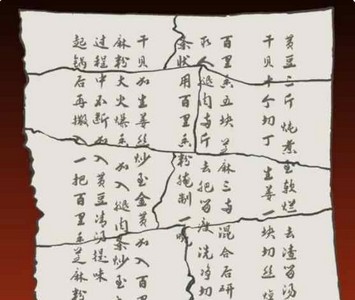 黄豆三斤 炖煮至软烂 去渣留汤
干贝十个切丁 生姜一块切丝
百里香五块 芝麻三两 混合后研
腿肉去把留 洗净切
条状 用百里香粉腌制一
干贝加生姜丝炒至金黄 加入百里
麻粉大火爆香 加入腿肉条炒至
过程中不断加入黄豆清汤提味
起锅后再撒入一把百里香芝麻粉